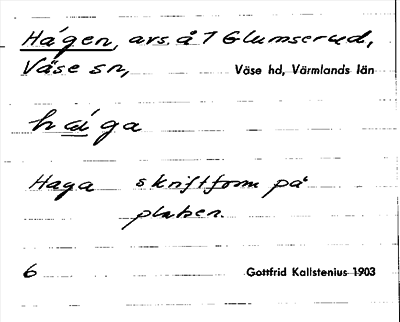 Hågen, avs. å 1 Glumserud,
Väse sn, Väse hd, Värmlands län
håga
Haga skriftform på
platsen.
6 Gottfrid Kallstenius 1903